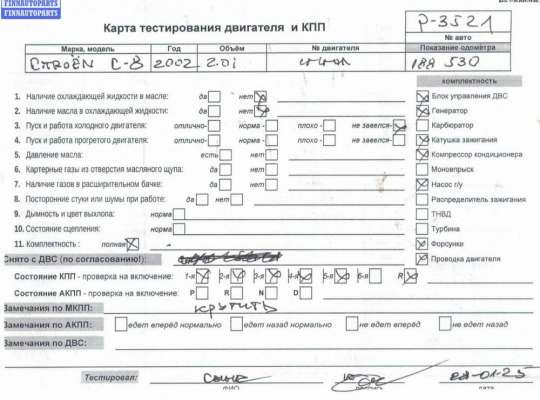 FINNAUTOPARTS
FINNAUTOPARTS
Карта тестирования двигателя и КПП
P-3521
№ авто
Марка, модель Год Объём № двигателя Показание одометра
CITROËN C-8 2002 2.0i 188 530
комплектность
1. Наличие охлаждающей жидкости в масле: да нет Блок управления ДВС
2. Наличие масла в охлаждающей жидкости: да нет Генератор
3. Пуск и работа холодного двигателя: отлично- норма- плохо- не завелся- Карбюратор
4. Пуск и работа прогретого двигателя: отлично- норма- плохо- не завелся- Катушка зажигания
5. Давление масла: есть нет Компрессор кондиционера
6. Картерные газы из отверстия масляного щупа: да нет Моновпрыск
7. Наличие газов в расширительном бачке: да нет Насос г/у
8. Посторонние стуки или шумы при работе: да нет Распределитель зажигания
9. Дымность и цвет выхлопа: норма ТНВД
10. Состояние сцепления: норма Турбина
11. Комплектность : полная Форсунки
Снято с ДВС (по согласованию!): Проводка двигателя
Состояние КПП - проверка на включение: 1-я 2-я 3-я 4-я 5-я 6-я R
Состояние АКПП - проверка на включение: P R N D
Замечания по МКПП: крутить
Замечания по АКПП: едет вперёд нормально едет назад нормально не едет вперёд не едет назад
Замечания по ДВС:
Тестировал: 28-01-25
дата